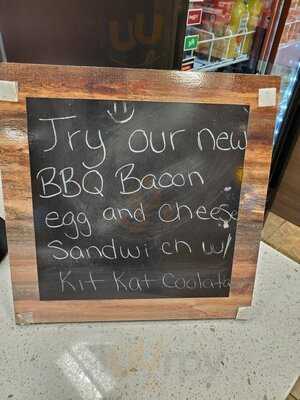 Try our new
BBQ Bacon
egg and cheese
Sandwich w/
Kit Kat Coolata